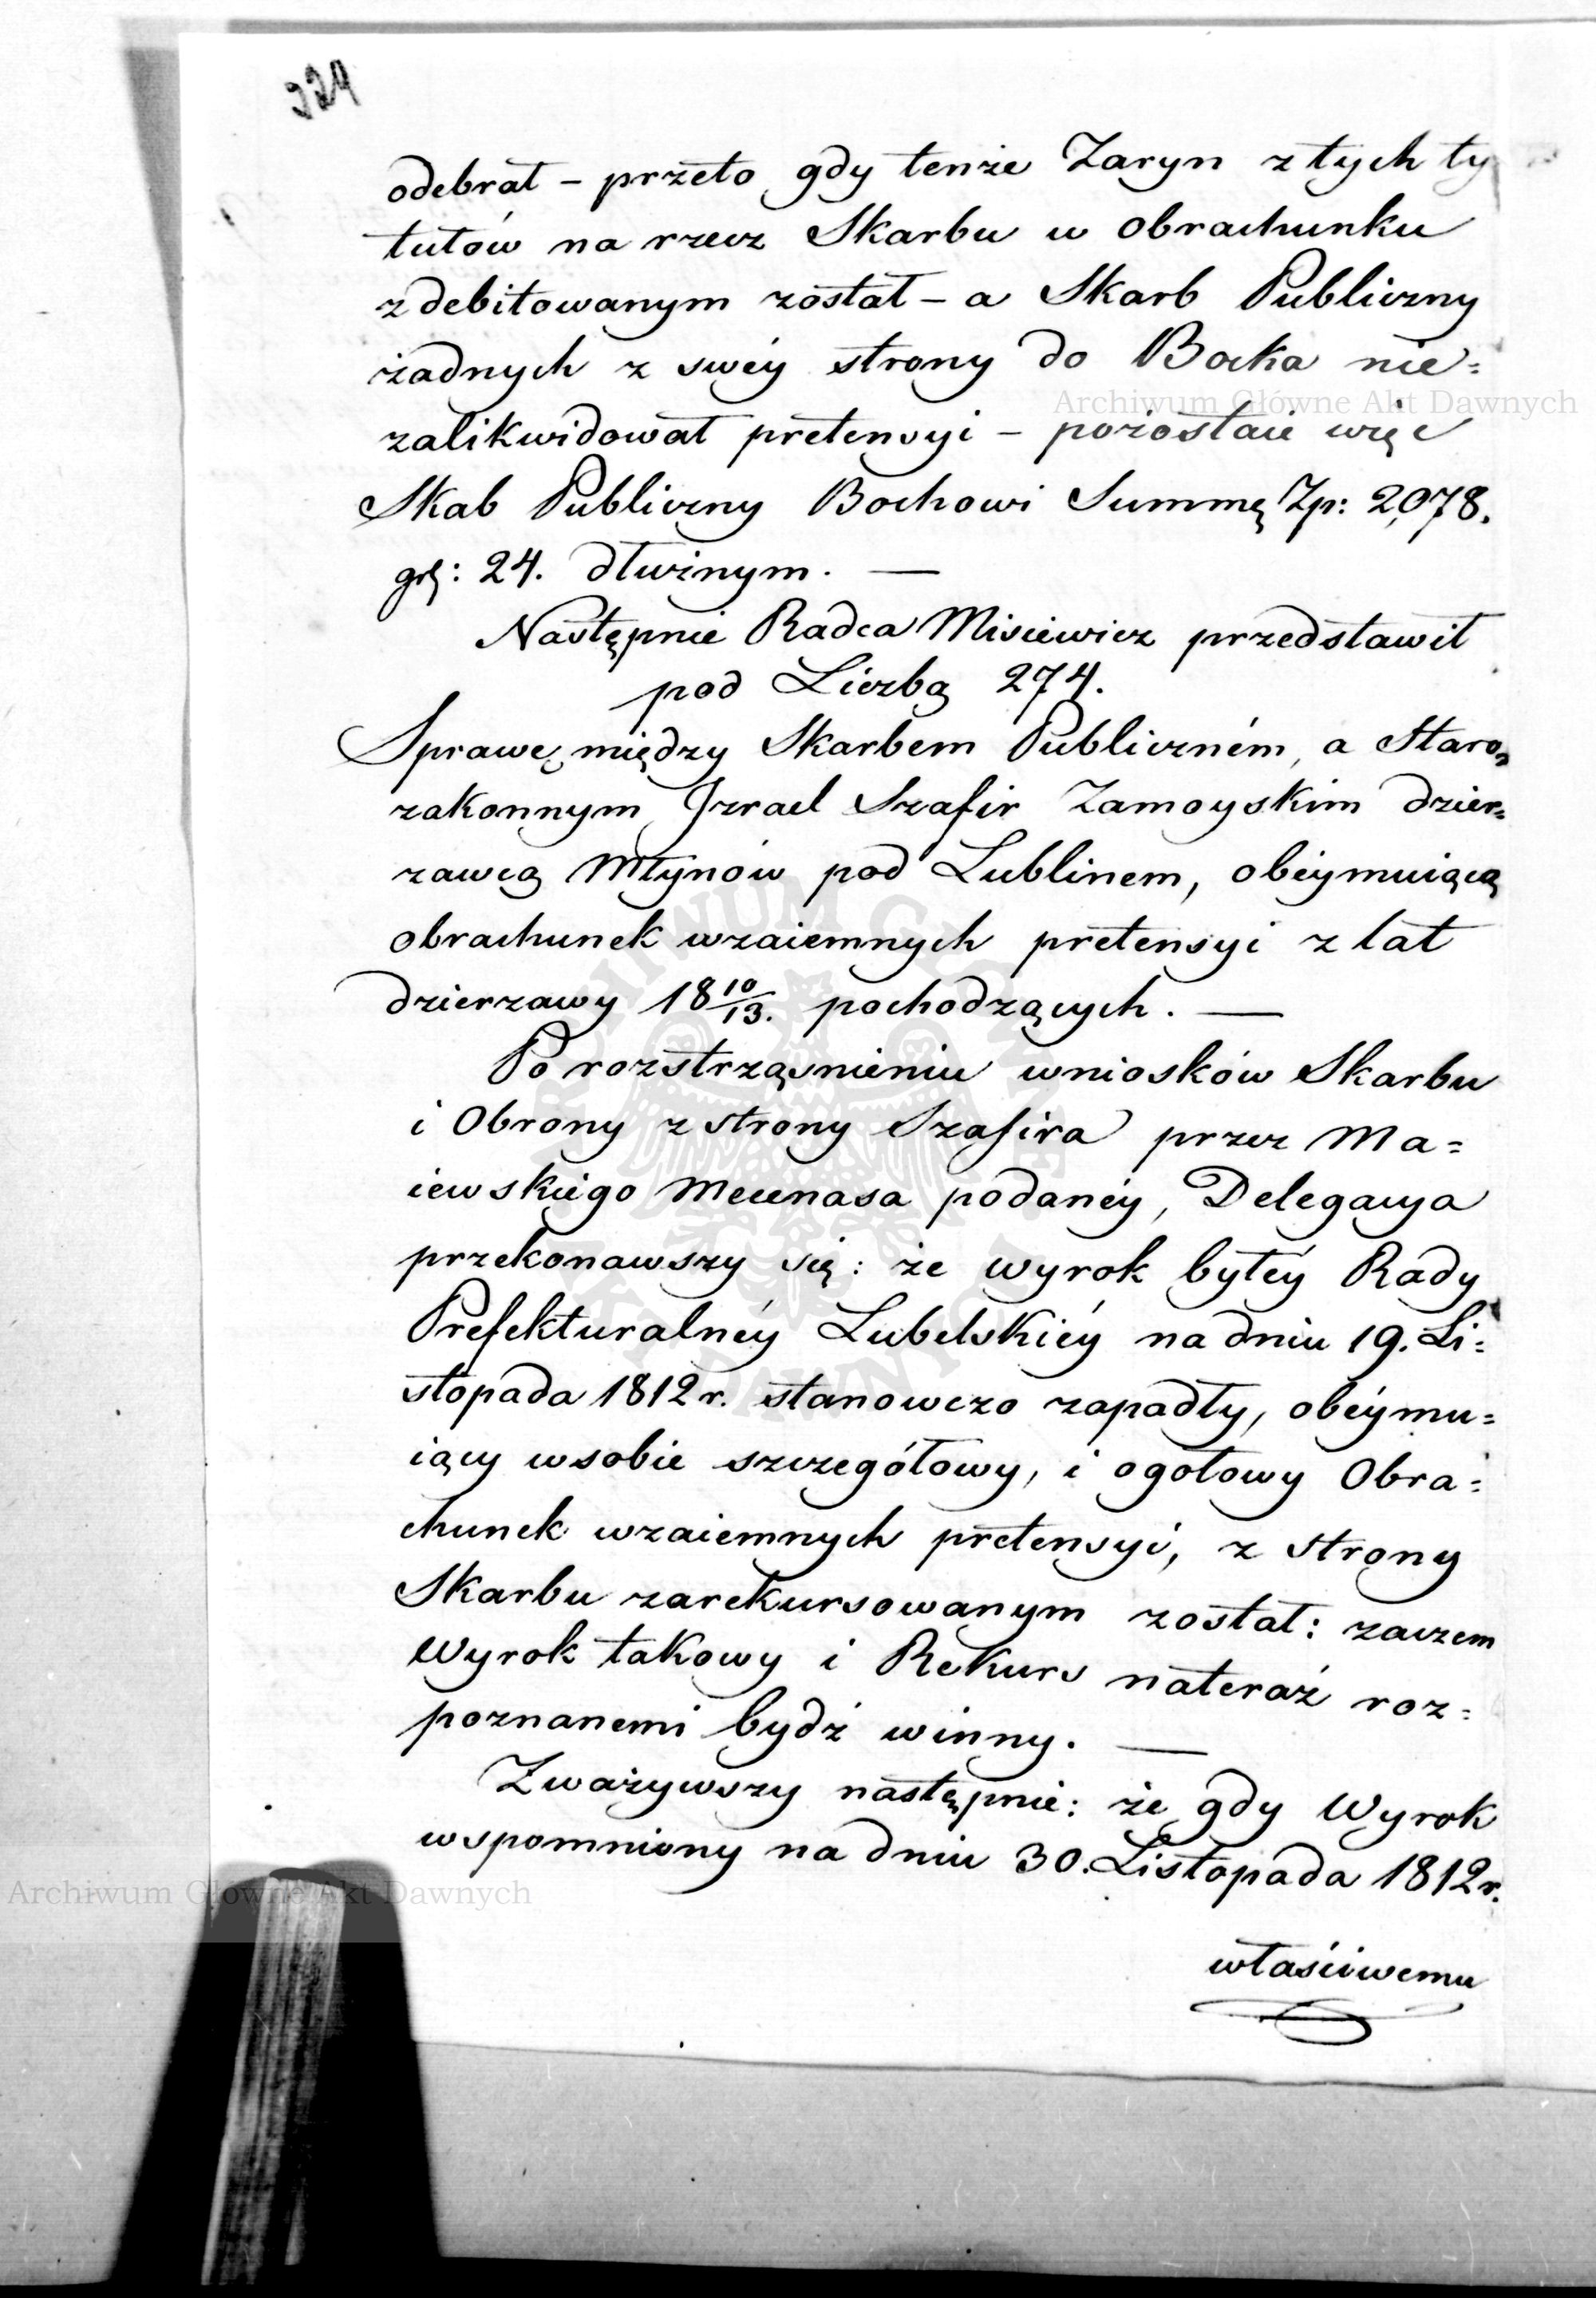 324
odebrał – przeto gdy tenże Zaryn z tych ty
tułów na rzecz Skarbu w obrachunku
zdebitowanym został – a Skarb Publiczny
żadnych z swéy strony do Bocka nie=
Archiwum Główne Akt Dawnych
zalikwidował pretensyi – pozostaie więc
Skab Publiczny Bochowi Summę Zp: 2,078.
gr: 24. dłużnym. —
Następnie Radca Misiewicz przedstawił
pod Liczbą 274.
Sprawę między Skarbem Publiczném, a Staro=
zakonnym Izrael Szafir Zamoyskim dzier=
zawcą Młynów pod Lublinem, obéymuiącą
obrachunek wzaiemnych pretensyi z lat
dzierzawy 18 10/13. pochodzących. —
Po rozstrząśnieniu wniosków Skarbu
i Obrony z strony Szafira przez Ma=
iewskiego Mecenasa podanéy, Delegacya
przekonawszy się: że wyrok byłéy Rady
Prefekturalnéy Lubelskiéy na dniu 19. Li=
stopada 1812 r. stanowczo zapadły, obéymu=
iący w sobie szczegółowy, i ogołowy Obra=
chunek wzaiemnych pretensyi, z strony
Skarbu zarekursowanym został: zaczem
Wyrok takowy i Rekurs nateraz roz=
poznanemi bydź winny. —
Zważywszy następnie: że gdy Wyrok
wspomniony na dniu 30. Listopada 1812 r.
Archiwum Główne Akt Dawnych
właściwemu